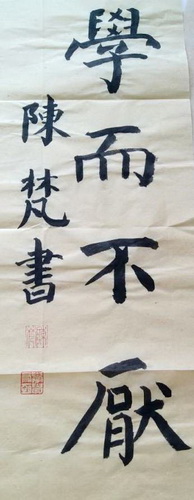 學而不厭
陳梵書